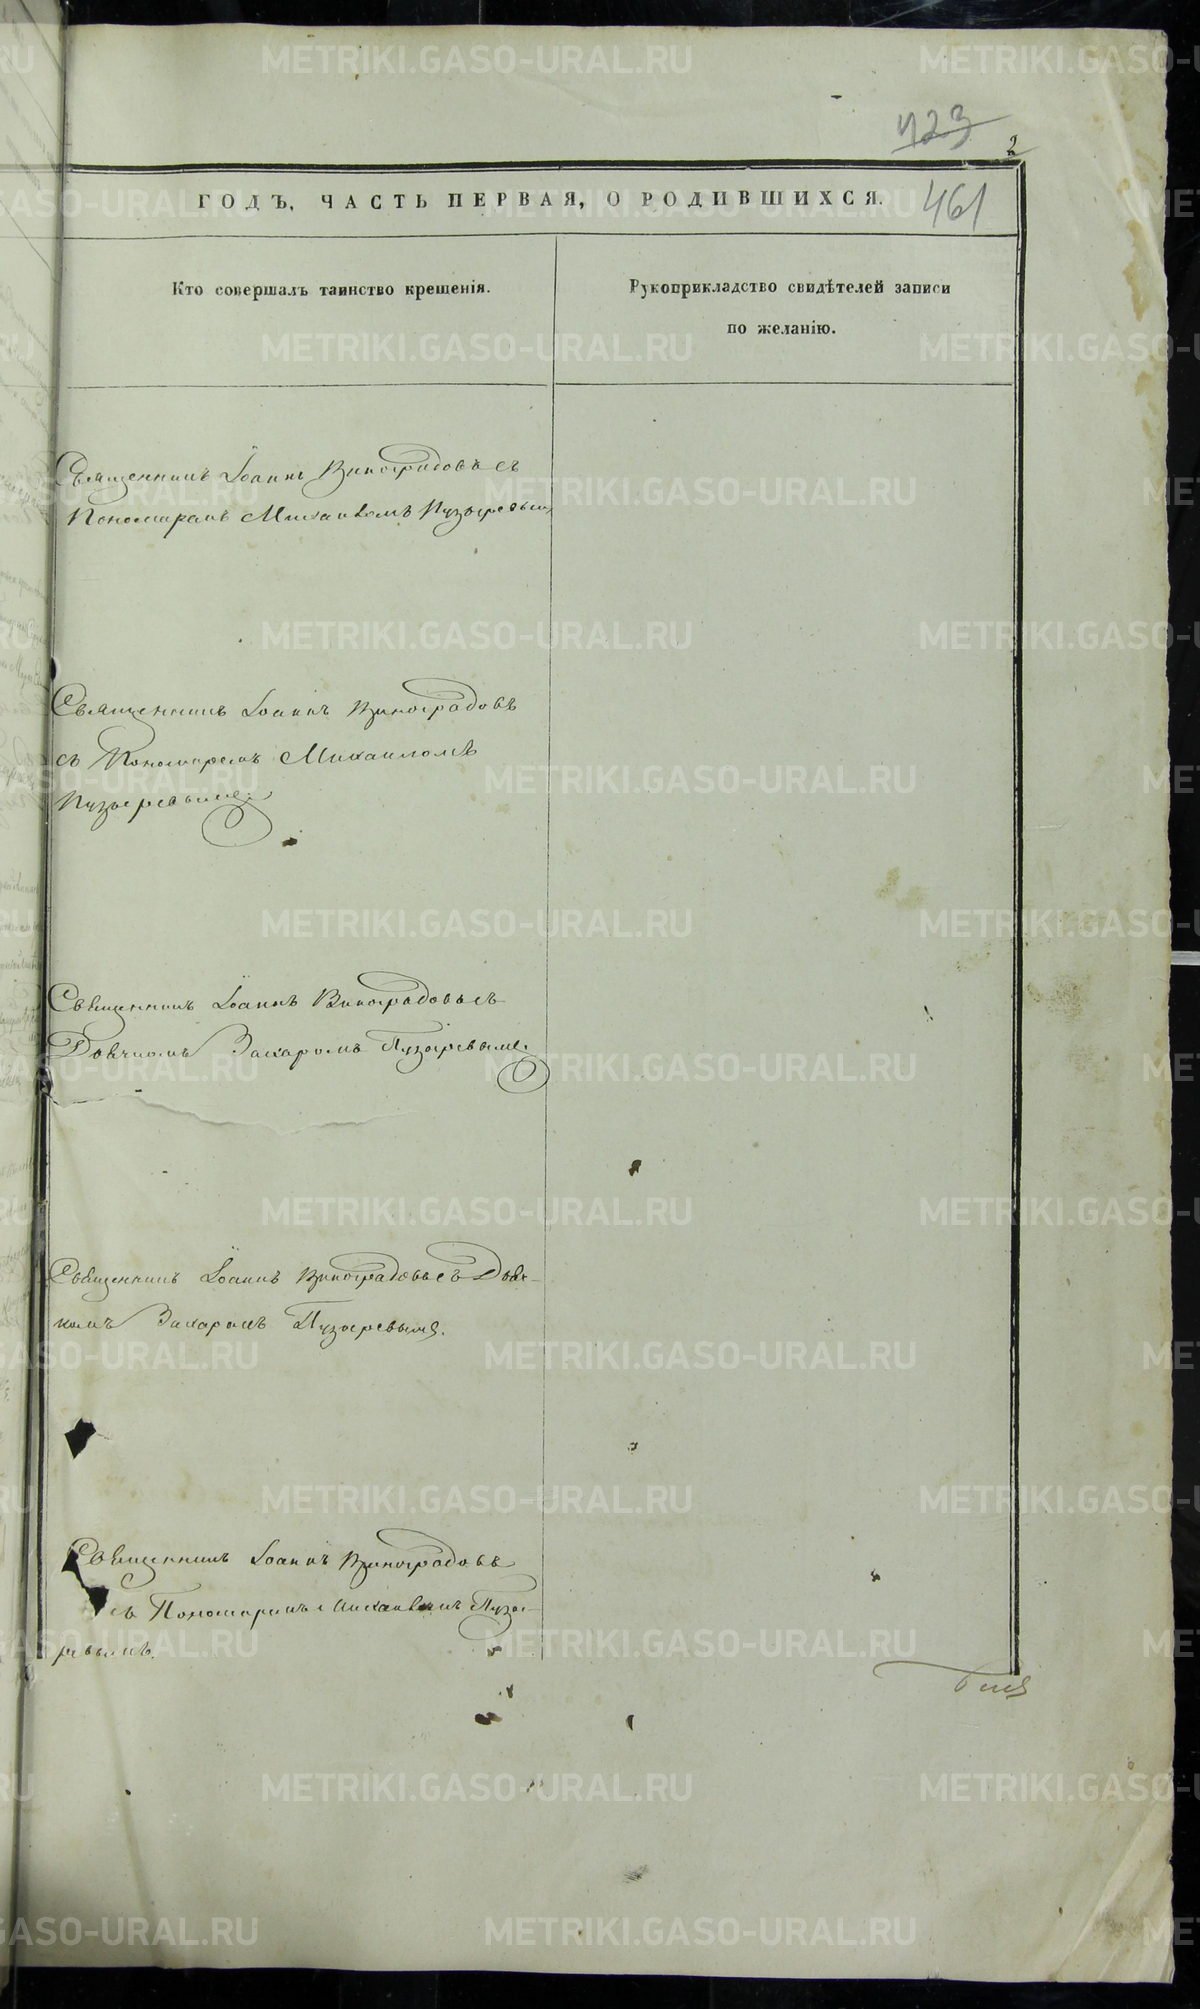 423
2
ГОДЪ, ЧАСТЬ ПЕРВАЯ, О РОДИВШИХСЯ.
461
Кто совершалъ таинство крещенія.
Рукоприкладство свидѣтелей записи
по желанію.
Священникъ Іоаннъ Виноградовъ съ
Пономаремъ Михаиломъ Пузыревымъ
Священникъ Іоаннъ Виноградовъ
съ Пономаремъ Михаиломъ
Пузыревымъ.
Священникъ Іоаннъ Виноградовъ съ
Дьячкомъ Захаромъ Пузыревымъ.
Священникъ Іоаннъ Виноградовъ съ Дьяч-
комъ Захаромъ Пузыревымъ.
Священникъ Іоаннъ Виноградовъ
съ Пономаремъ Михаиломъ Пузы-
ревымъ.
METRIKI.GASO-URAL.RU